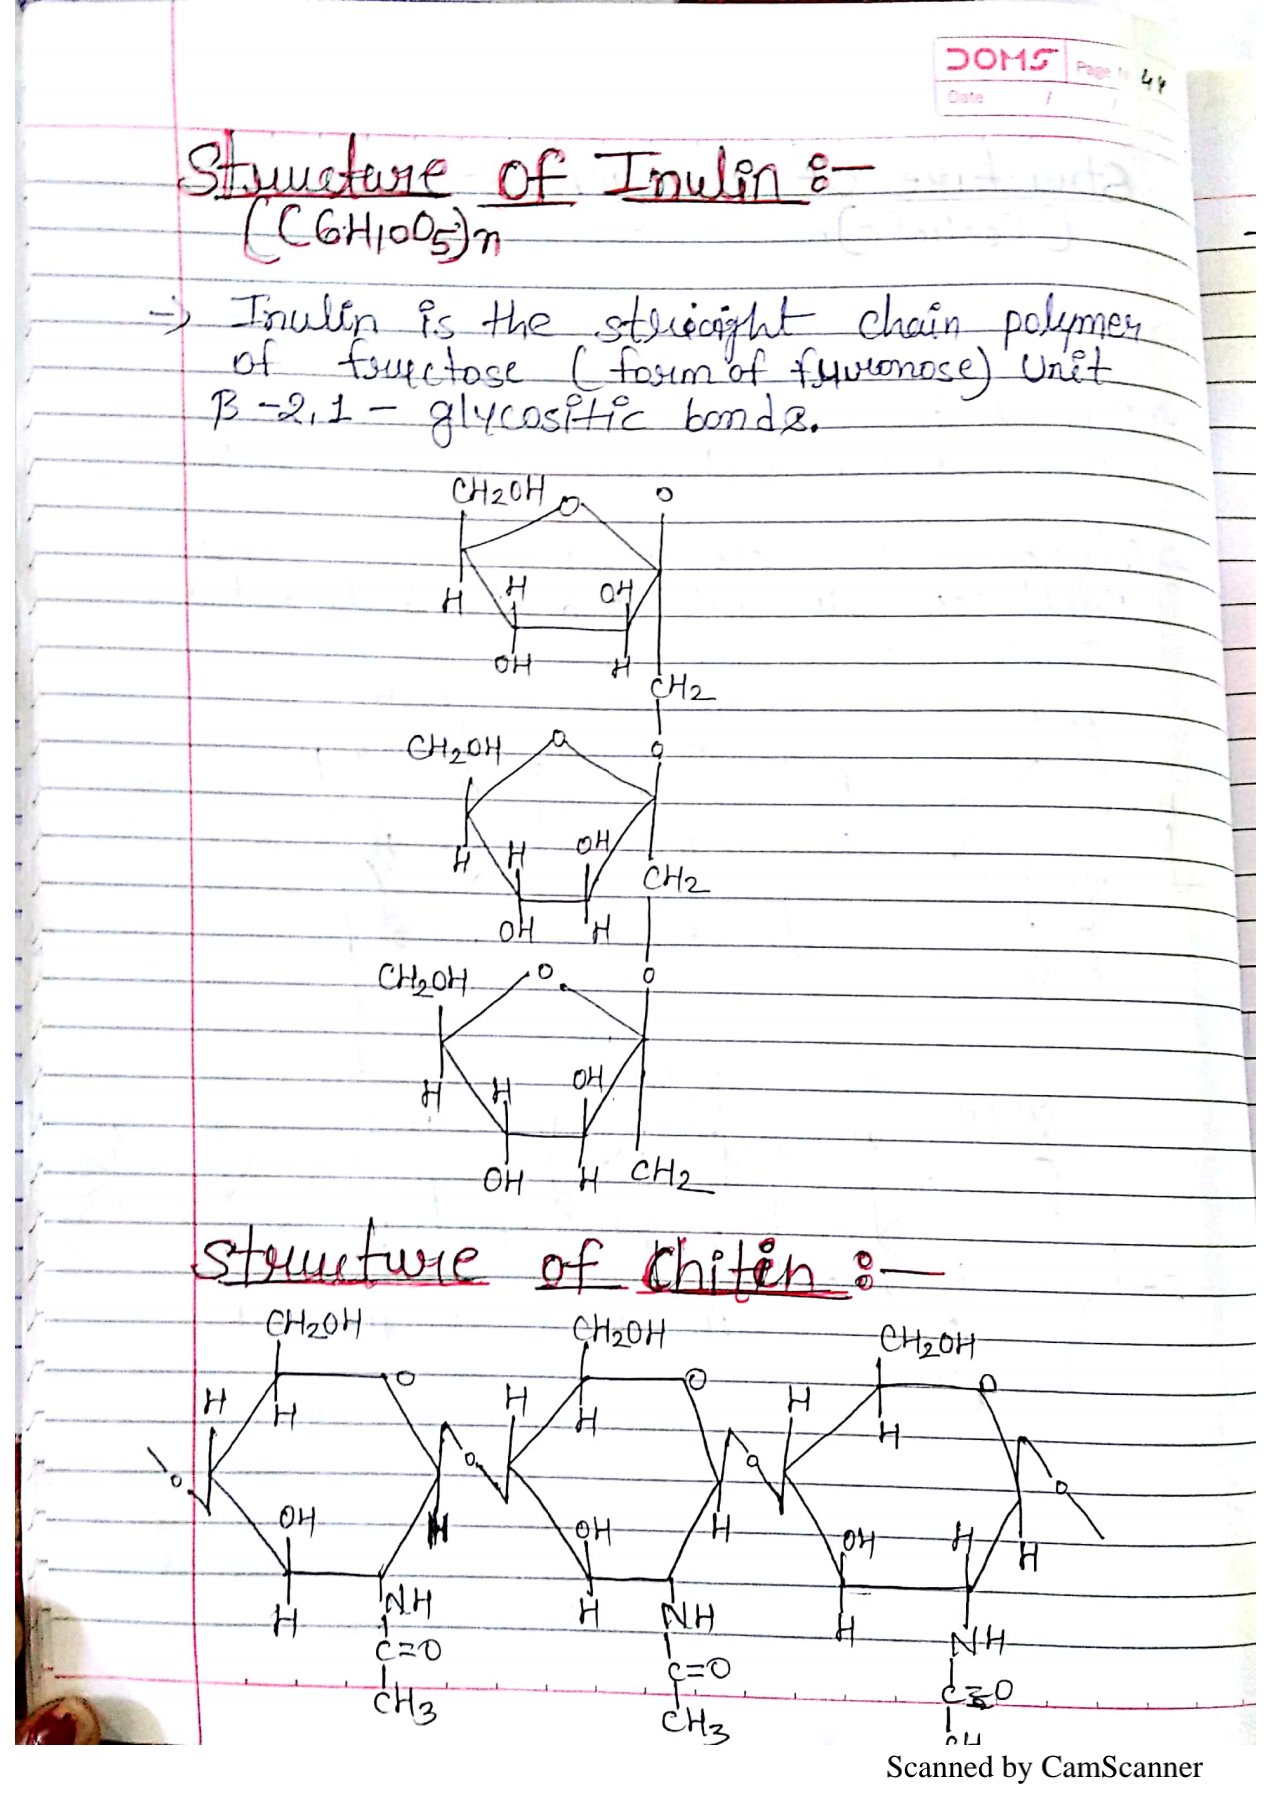 DOMS Page N 44
Date / /
Structure of Inulin :-
(C6H10O5)n
→ Inulin is the straight chain polymer
of fructose (form of furonose) Unit
β-2,1- glycositic bonds.
CH2OH O O
H H OH
OH H
CH2
CH2OH O O
H H OH
CH2
OH H
CH2OH O O
H H OH
OH H CH2
Structure of Chitin :-
CH2OH CH2OH CH2OH
H H O H H O H H O
O O O O
OH H OH H OH H H
H NH H NH H NH
C=O C=O C=O
CH3 CH3 CH
Scanned by CamScanner